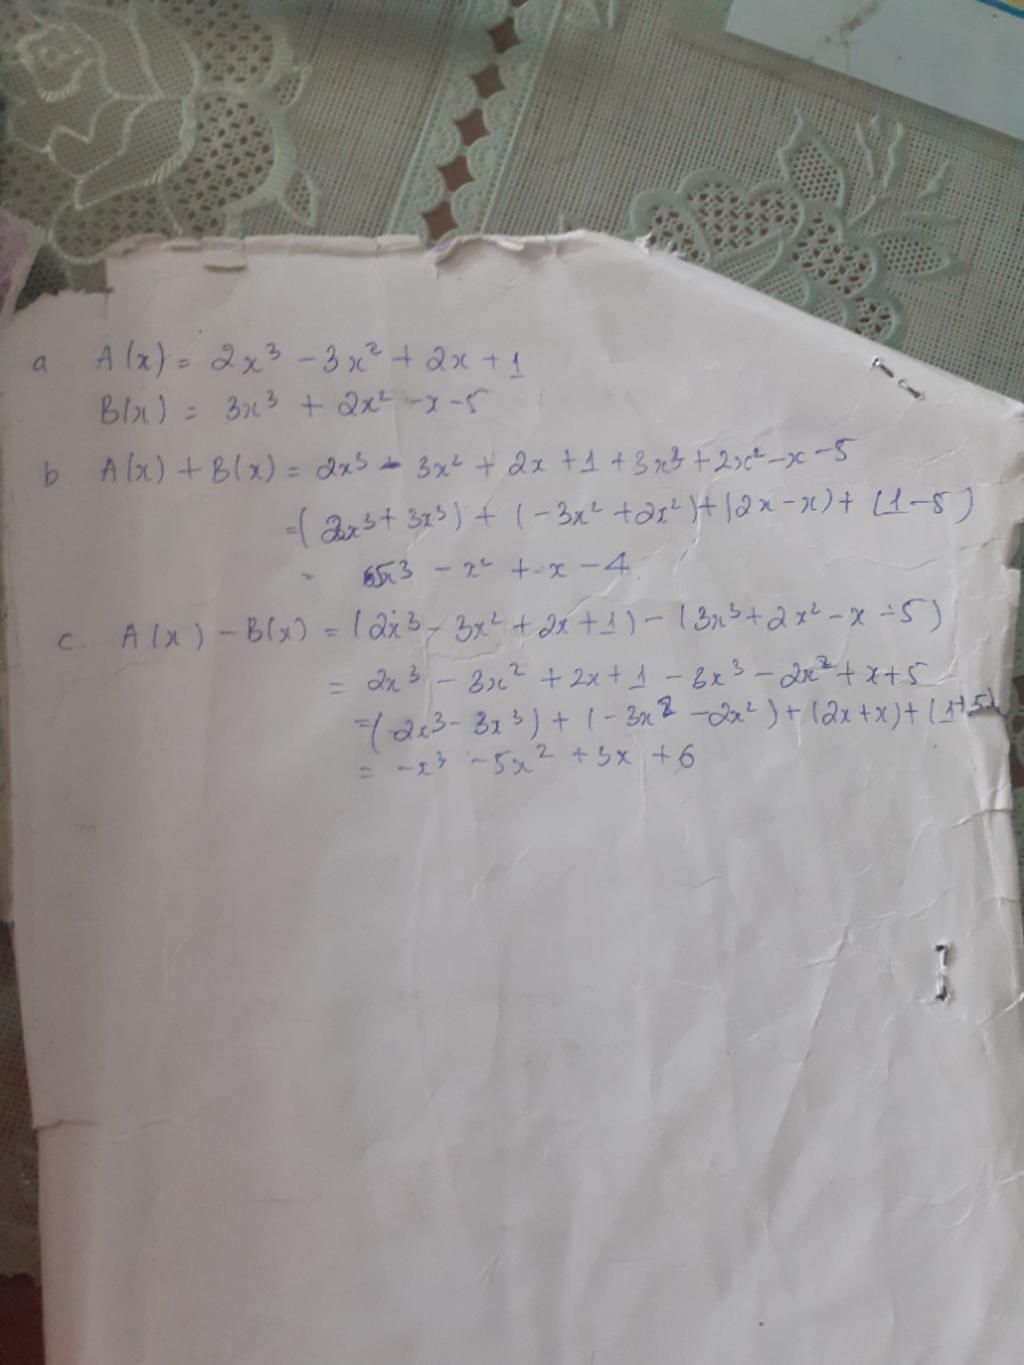 a A(x) = 2x³ - 3x² + 2x + 1
B(x) = 3x³ + 2x² - x - 5
b A(x) + B(x) = 2x³ - 3x² + 2x + 1 + 3x³ + 2x² - x - 5
= (2x³ + 3x³) + (-3x² + 2x²) + (2x - x) + (1 - 5)
= 5x³ - x² + x - 4
c. A(x) - B(x) = (2x³ - 3x² + 2x + 1) - (3x³ + 2x² - x - 5)
= 2x³ - 3x² + 2x + 1 - 3x³ - 2x² + x + 5
= (2x³ - 3x³) + (-3x² - 2x²) + (2x + x) + (1 + 5)
= -x³ - 5x² + 3x + 6